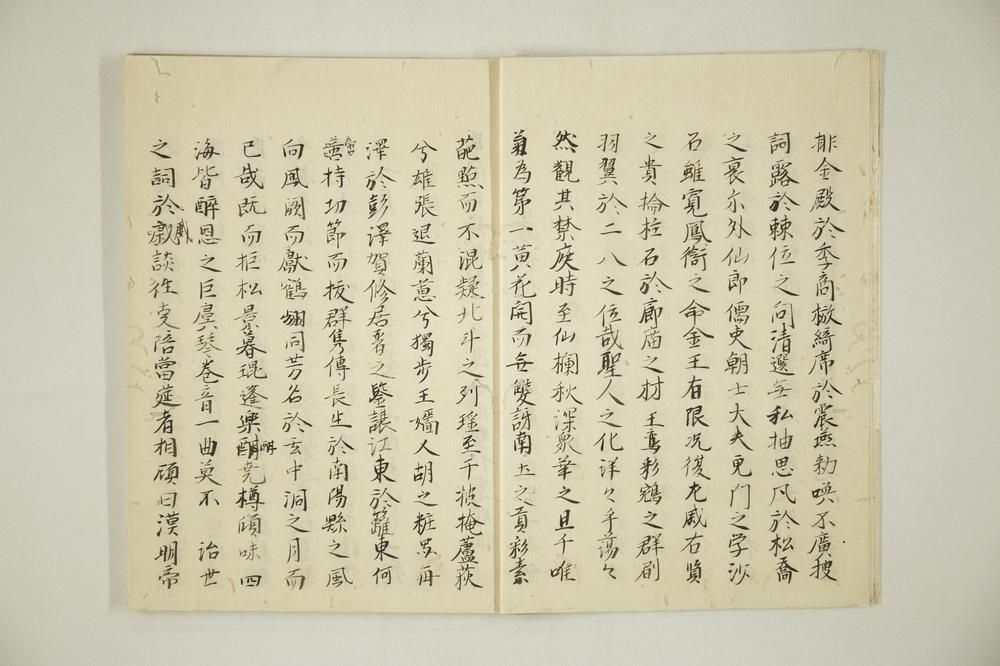 排金殿於季商檄綺席於震燕勅喚不廣捜
詞露於棘位之問清選無私抽思風於松喬
之裏尓外仙郎儒吏朝士大夫兎門之学沙
石雖寛鳳銜之命金玉有限况復左戚右賢
之貴掄柱石於廊廟之材玉鸞彩鵷之群刷
羽翼於二八之位哉聖人之化洋々乎蕩々
然観其禁庭時至仙欄秋深衆華之且千唯
菊為第一黄花開而無雙訝南土之貢彩素
葩点而不混疑北斗之列瑶至千彼掩蘆荻
兮雄張退蘭蕙兮獨歩王嬙人胡之粧男再
澤於彭澤賀修居晋之鑒譲江東於籬東何
啻持功節而抜群隽傳長生於南陽縣之風
向鳳闕而獻鶴翅同芳名於玄中洞之月而
已哉既而拒松景暮琨蓬樂酣堯樽頒味四
海皆酔恩之巨舜琴巻音一曲莫不 治世
之詞於戯談往叓陪當莚者相顧曰漢明帝